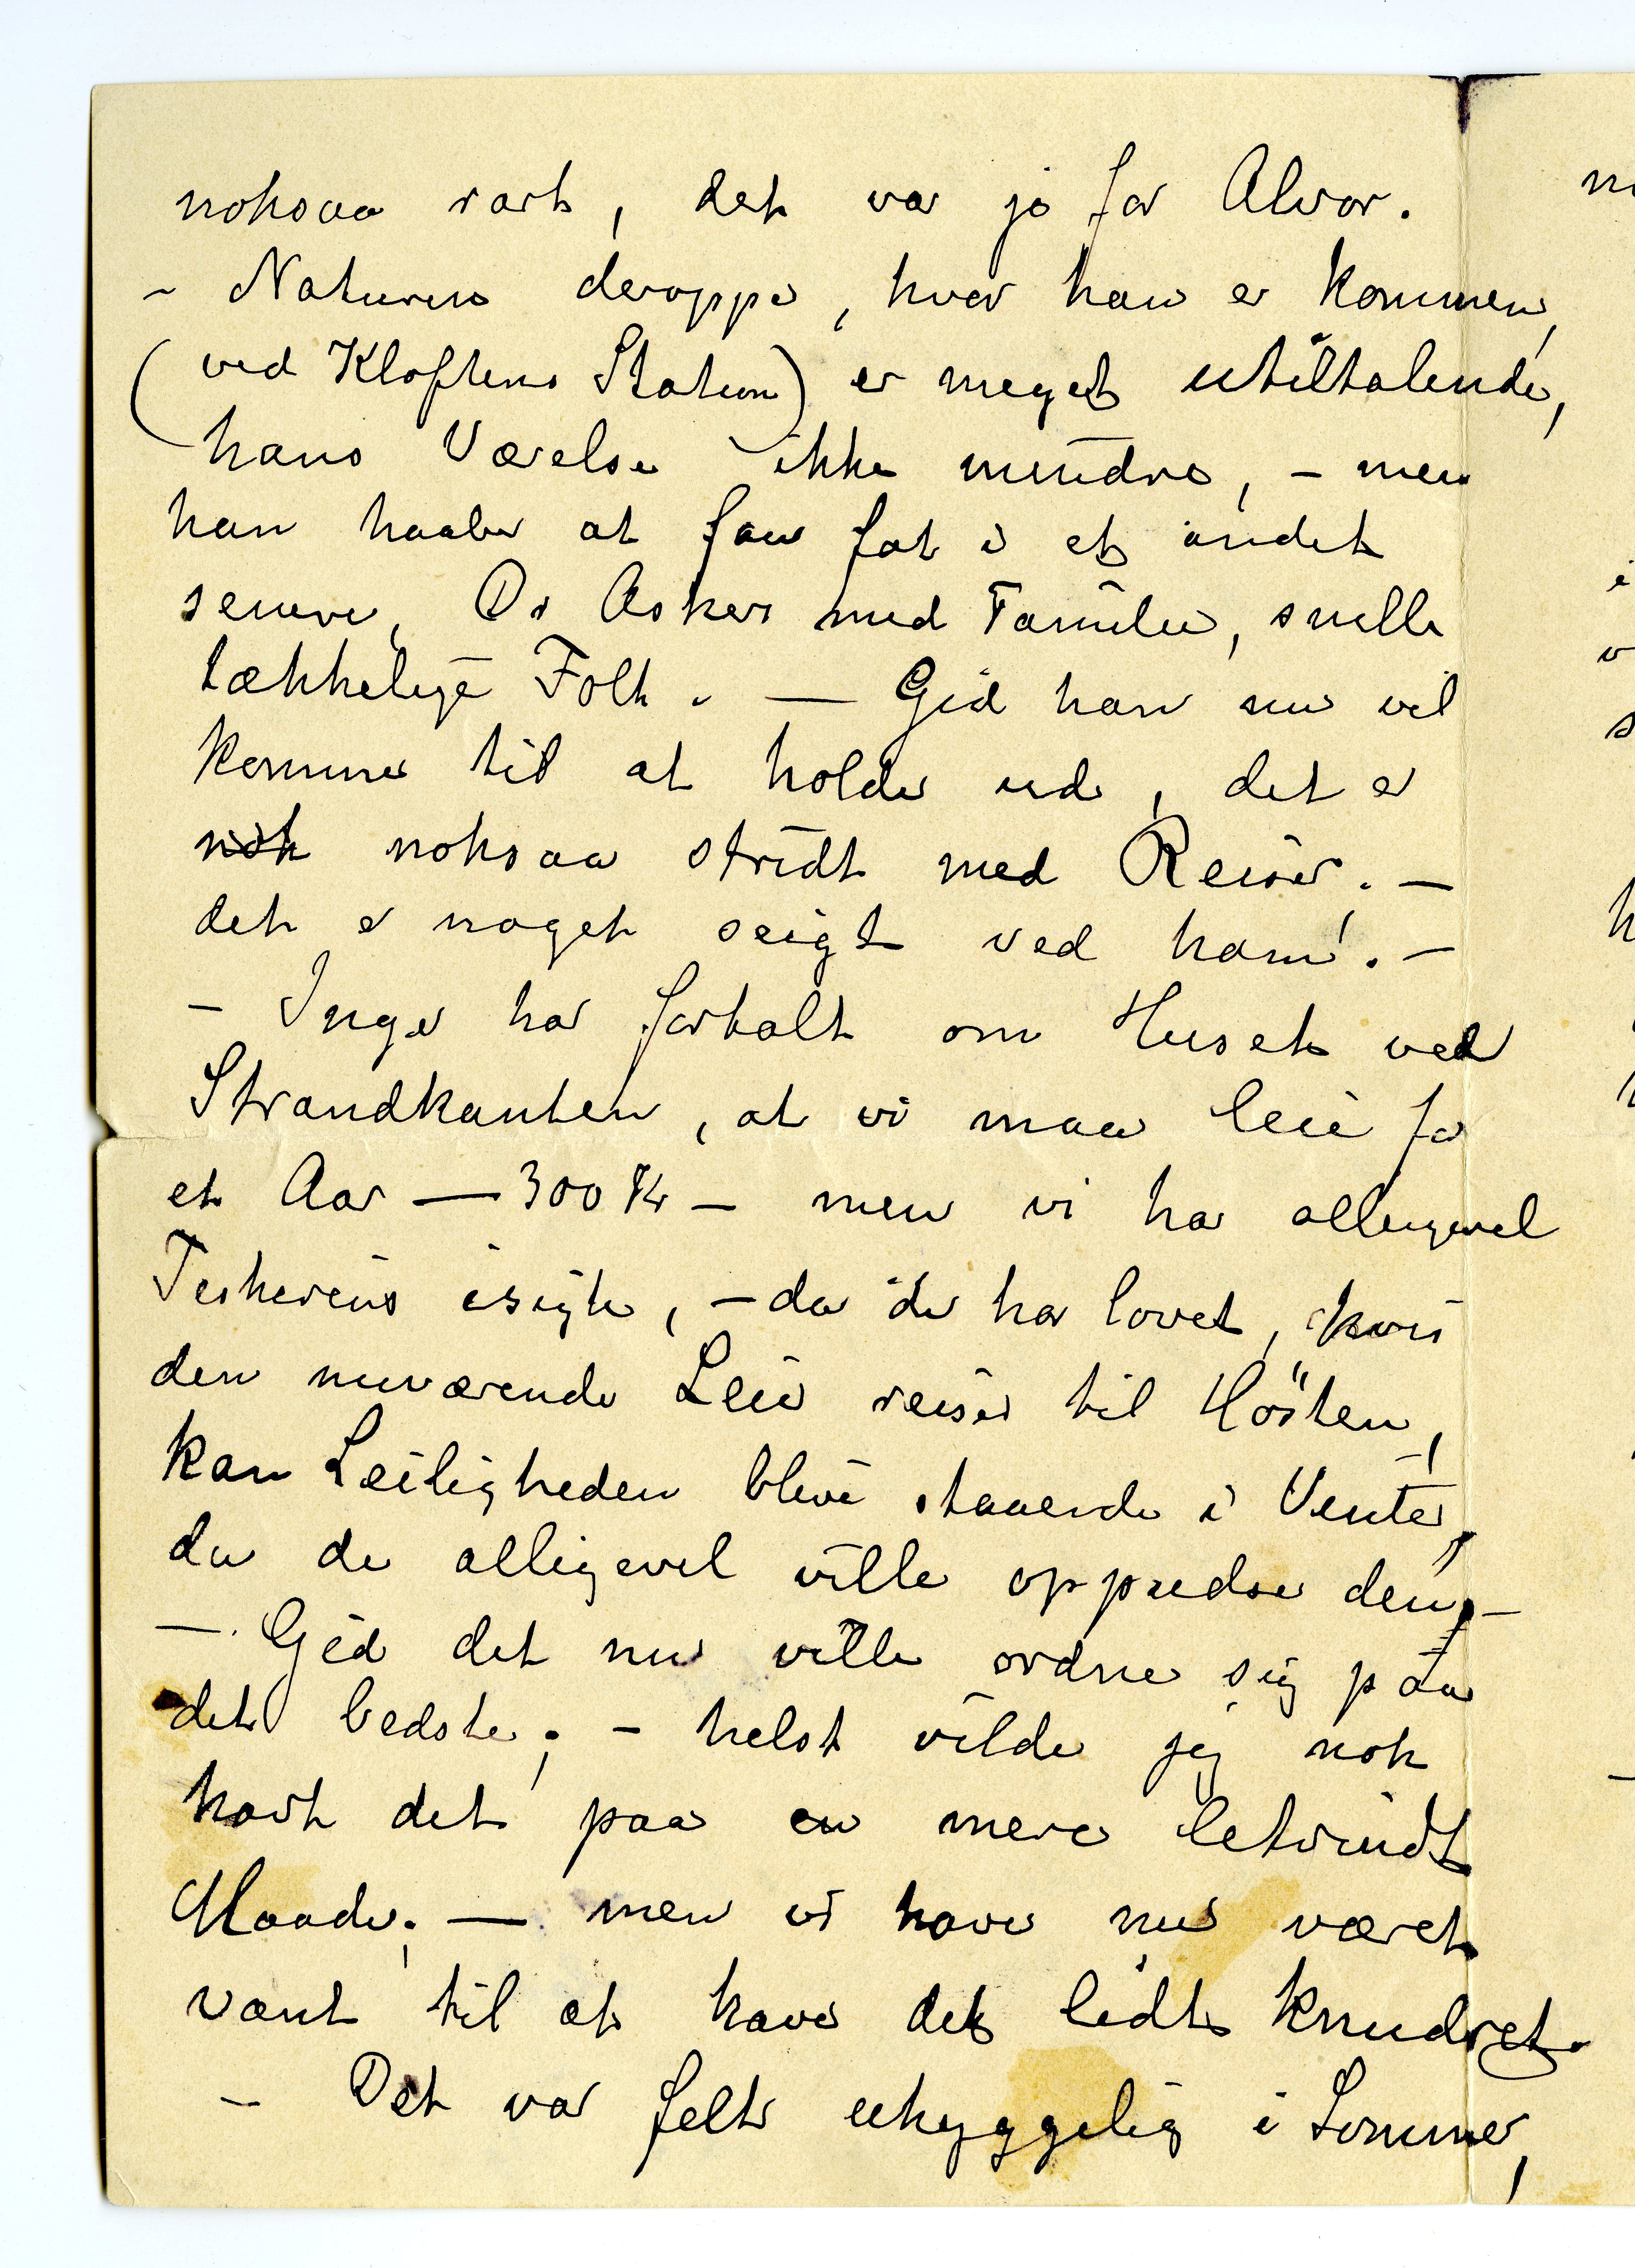 noksaa rart, det var jo for Alvor.
- Naturen deroppe, hvor han er kommen,
(ved Kløftens Station) er meget utiltalende,
hans Værelse ikke mindre, - men
han haaber at faa fat i et andet
senere, Dr Asker med Familie, snille
tækkelige Folk. — Gid han nu vil
komme til at holde ud, det er
nok noksaa stridt med Reiser. -
det er noget seigt ved ham. -
- Inga har fortalt om Huset ved
Strandkanten, at vi maa leie for
et Aar — 300 Kr - men vi har allengevel
isigte, - da de har lovet, hvis
den nuværende Leier reiser til Høsten,
kan Leiligheden blive staaende i Vente,
da de alligevel ville oppudse den, -
- Gid det nu ville ordne sig paa
det bedste; - helst vilde jeg nok
havt det paa en mere letvindt
Maade; — men vi have nu været
vant til at have det lidt knudret.
- Det var felt uhyggelig i Sommer,